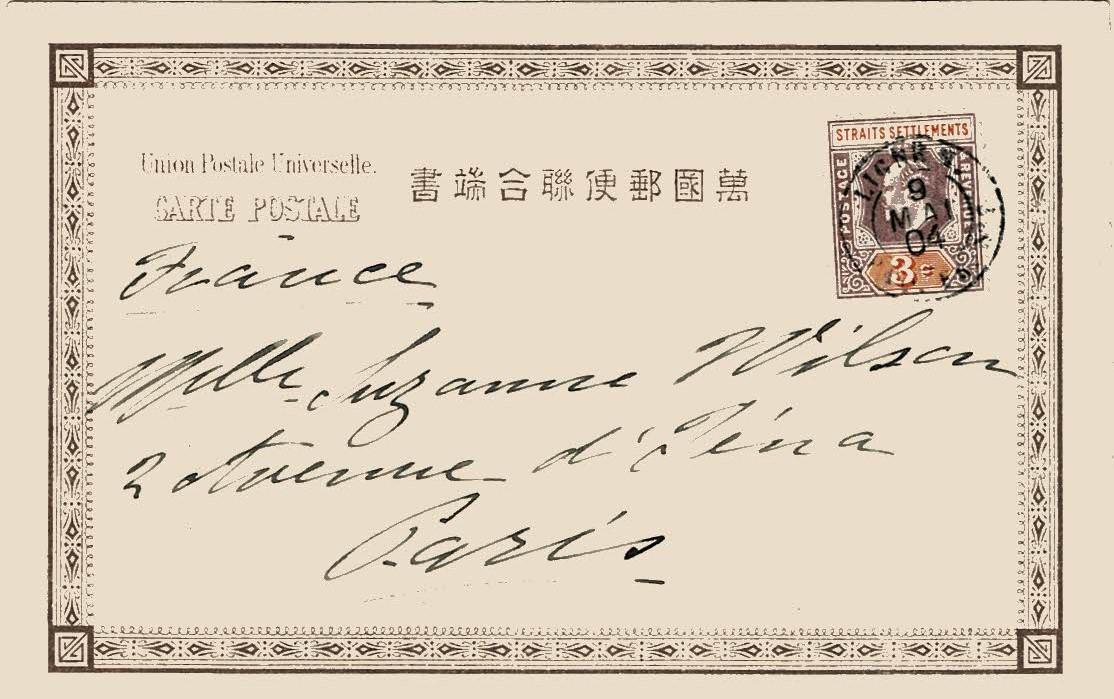 Union Postale Universelle.
CARTE POSTALE
萬國郵便聯合端書
STRAITS SETTLEMENTS
POSTAGE
3c
LIGNE N
9
MAI
04
France
Melle Suzanne Wilson
2 Avenue d'Iéna
Paris